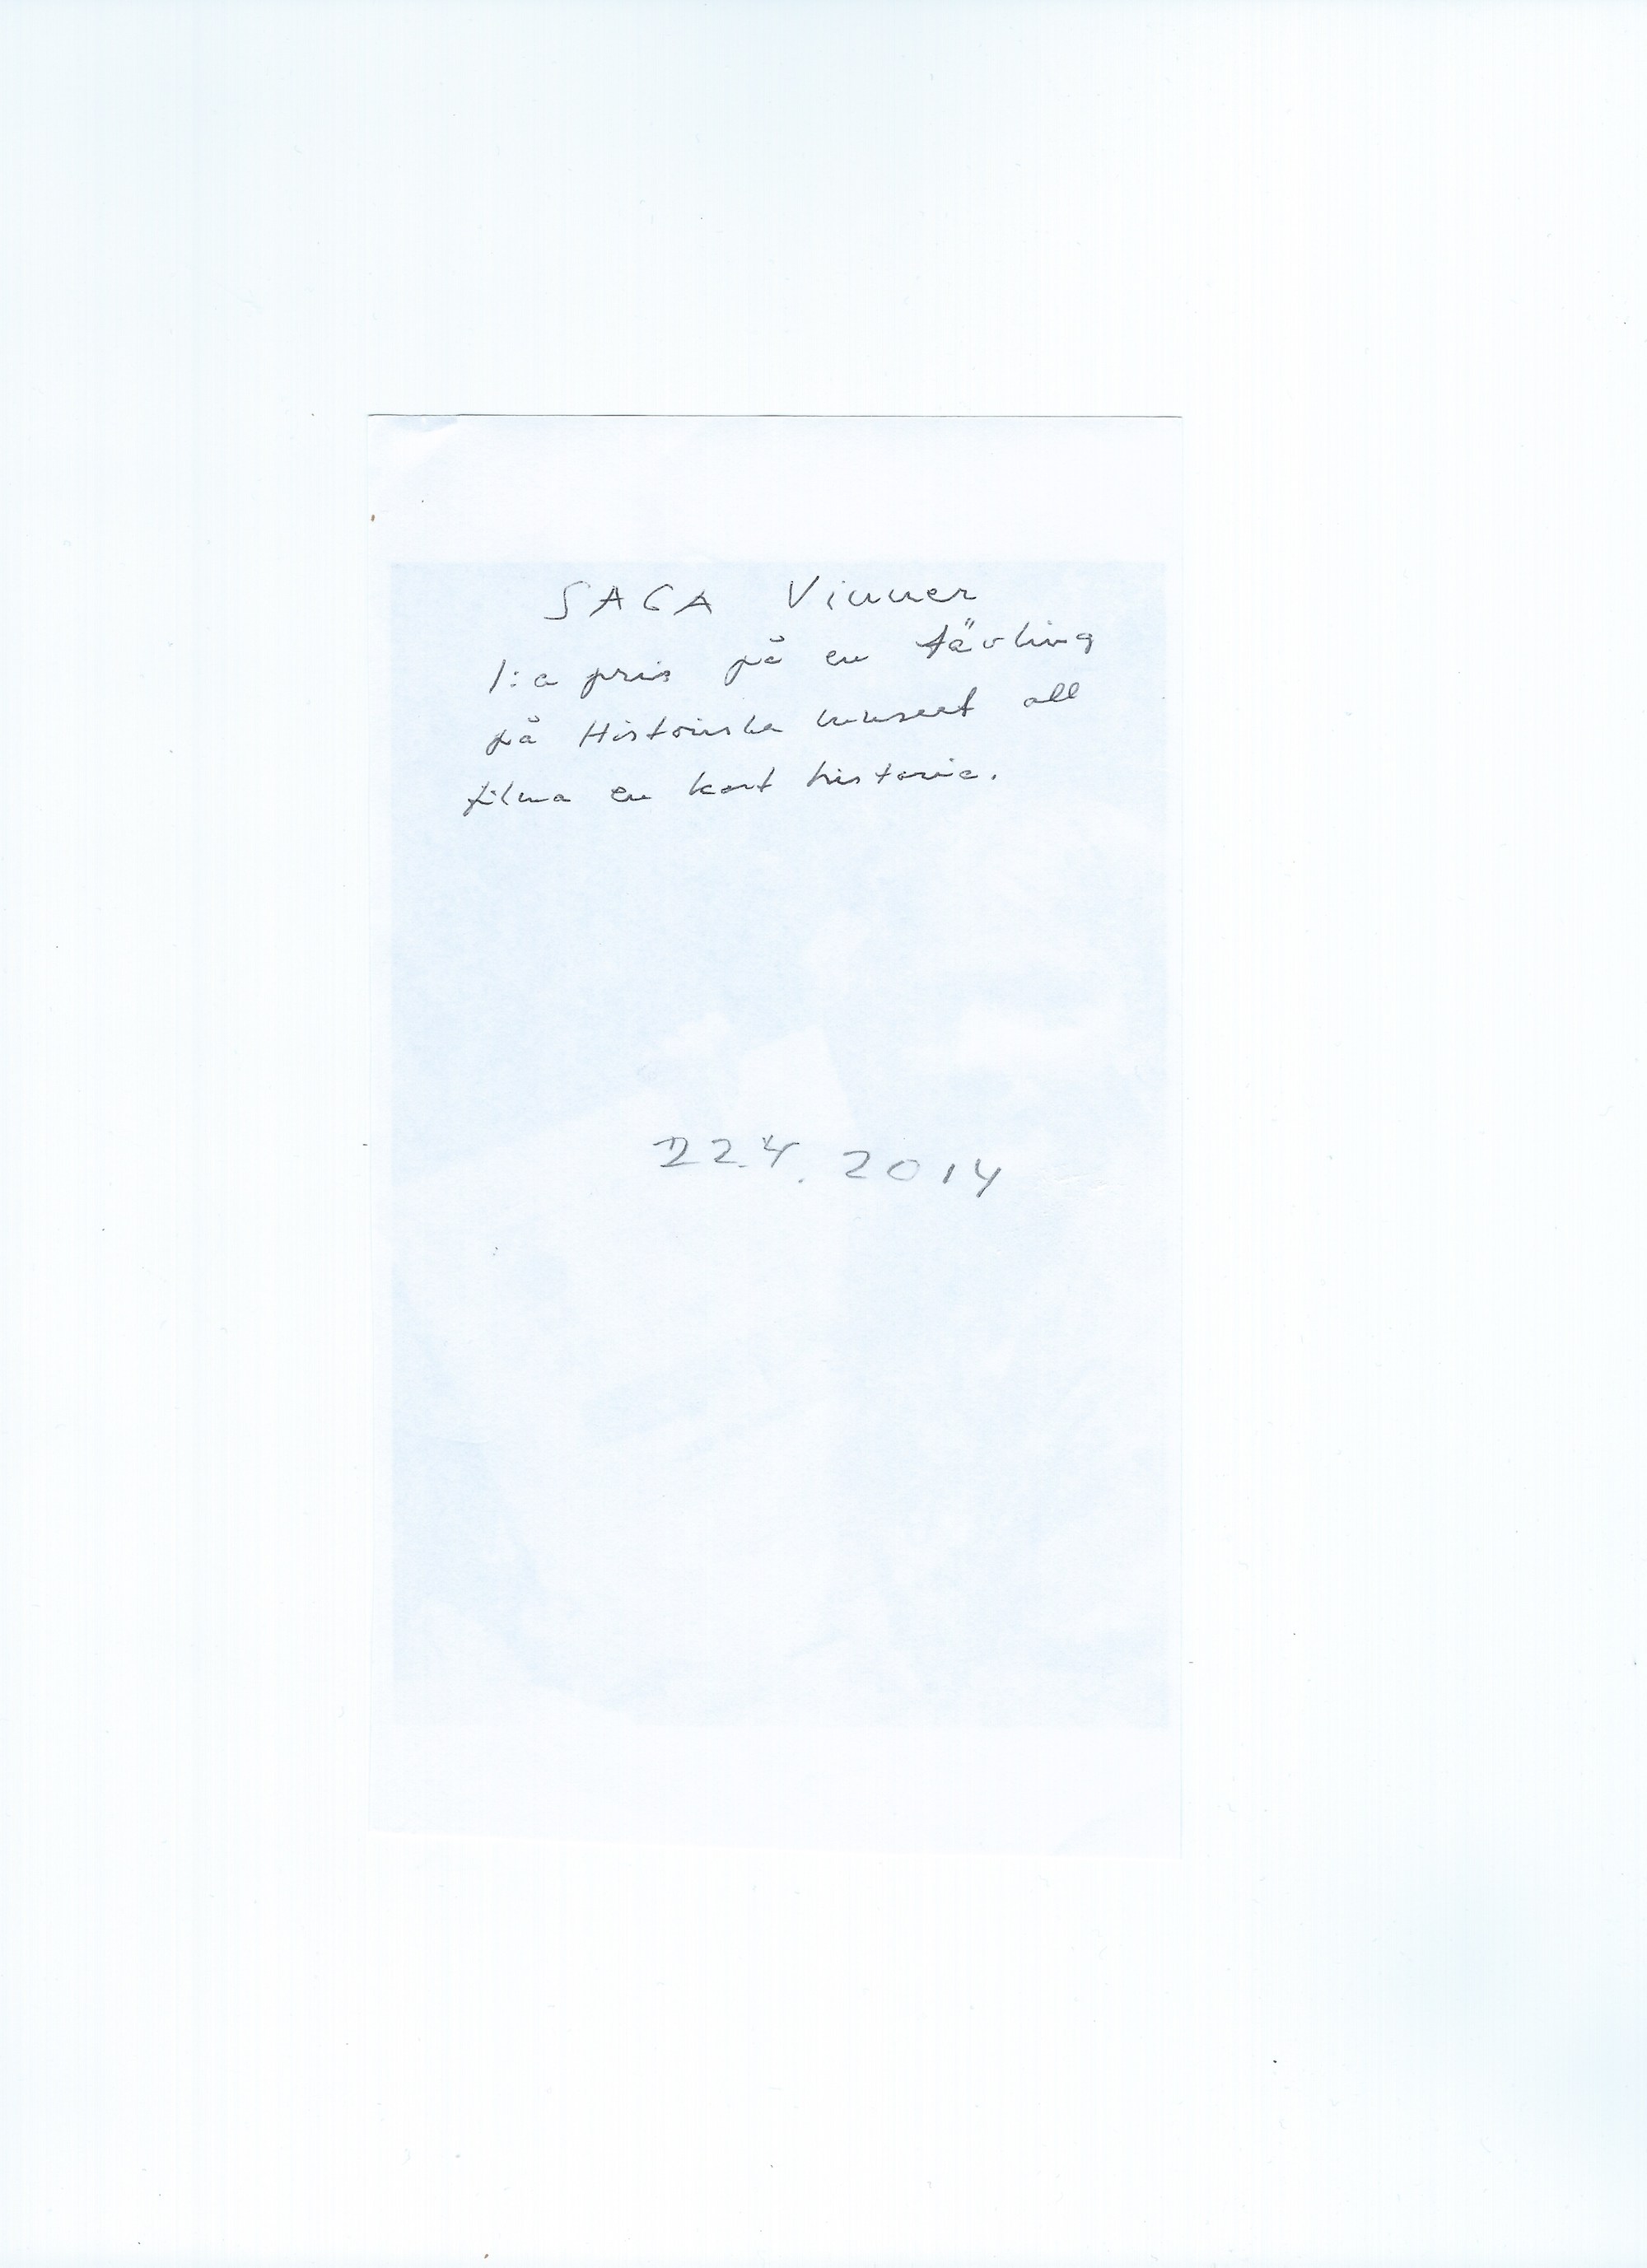 SAGA Vinner
1:a pris på en tävling
på Historiska museet all
filma en kort historia.
22.4. 2014